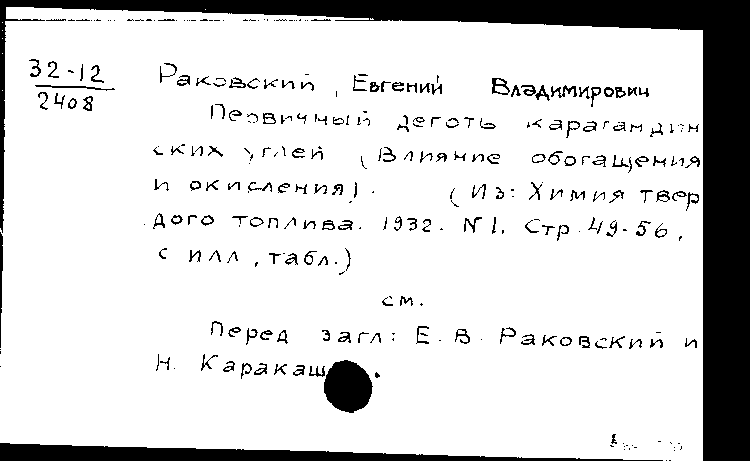 32-12
2408
Раковский, Евгений Владимирович
Первичный деготь карагандин
ских углей (Влияние обогащения
и окисления). (Из: Химия твер
дого топлива. 1932. N 1. Стр. 49-56,
с илл, табл.)
см.
Перед загл: Е. В. Раковский и
Н. Каракаш